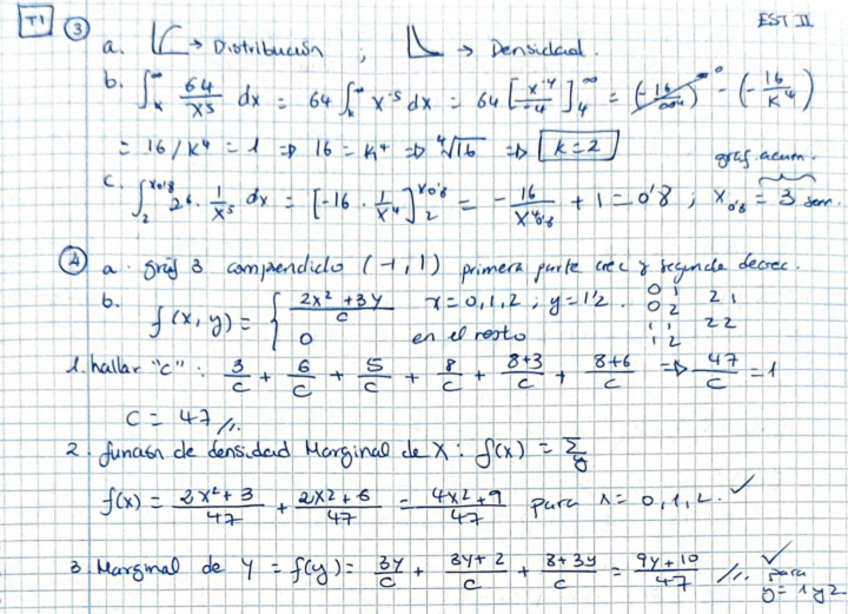 T1 ③ EST II
a. → Distribución ; → Densidad.
b. ∫_k^∞ 64/x5 dx = 64 ∫_k^∞ x^-5 dx = 64 [x^-4/-4]_4^∞ = (-16/∞4)^0 - (-16/k^4)
= 16/k^4 = 1 ⇒ 16 = k^4 ⇒ ∜16 ⇒ k=2
graf. acum.
c. ∫_2^x0'8 2^6 · 1/x^5 dx = [-16 · 1/x^4]_2^x0'8 = - 16/x^4 0'8 + 1 = 0'8 ; x0'8 = 3 sem.
④ a. graf 3 comprendido (-1,1) primera parte crec y segunda decrec.
b. f(x,y) = { 2x² + 3y / c x = 0,1,2 ; y = 1'2 . 0 1 2 1
0 en el resto 0 2 2 2
1 1
1 2
1. hallar "c" : 3/c + 6/c + 5/c + 8/c + 8+3/c + 8+6/c ⇒ 47/c = 1
c = 47 //.
2. función de densidad Marginal de X : f(x) = Σ_y
f(x) = 2x²+3/47 + 2x2+6/47 = 4x2+9/47 para x = 0,1,2. ✓
3. Marginal de Y = f(y) = 3y/c + 3y+2/c + 8+3y/c = 9y+10/47 //. ✓ para
y = 1 y 2